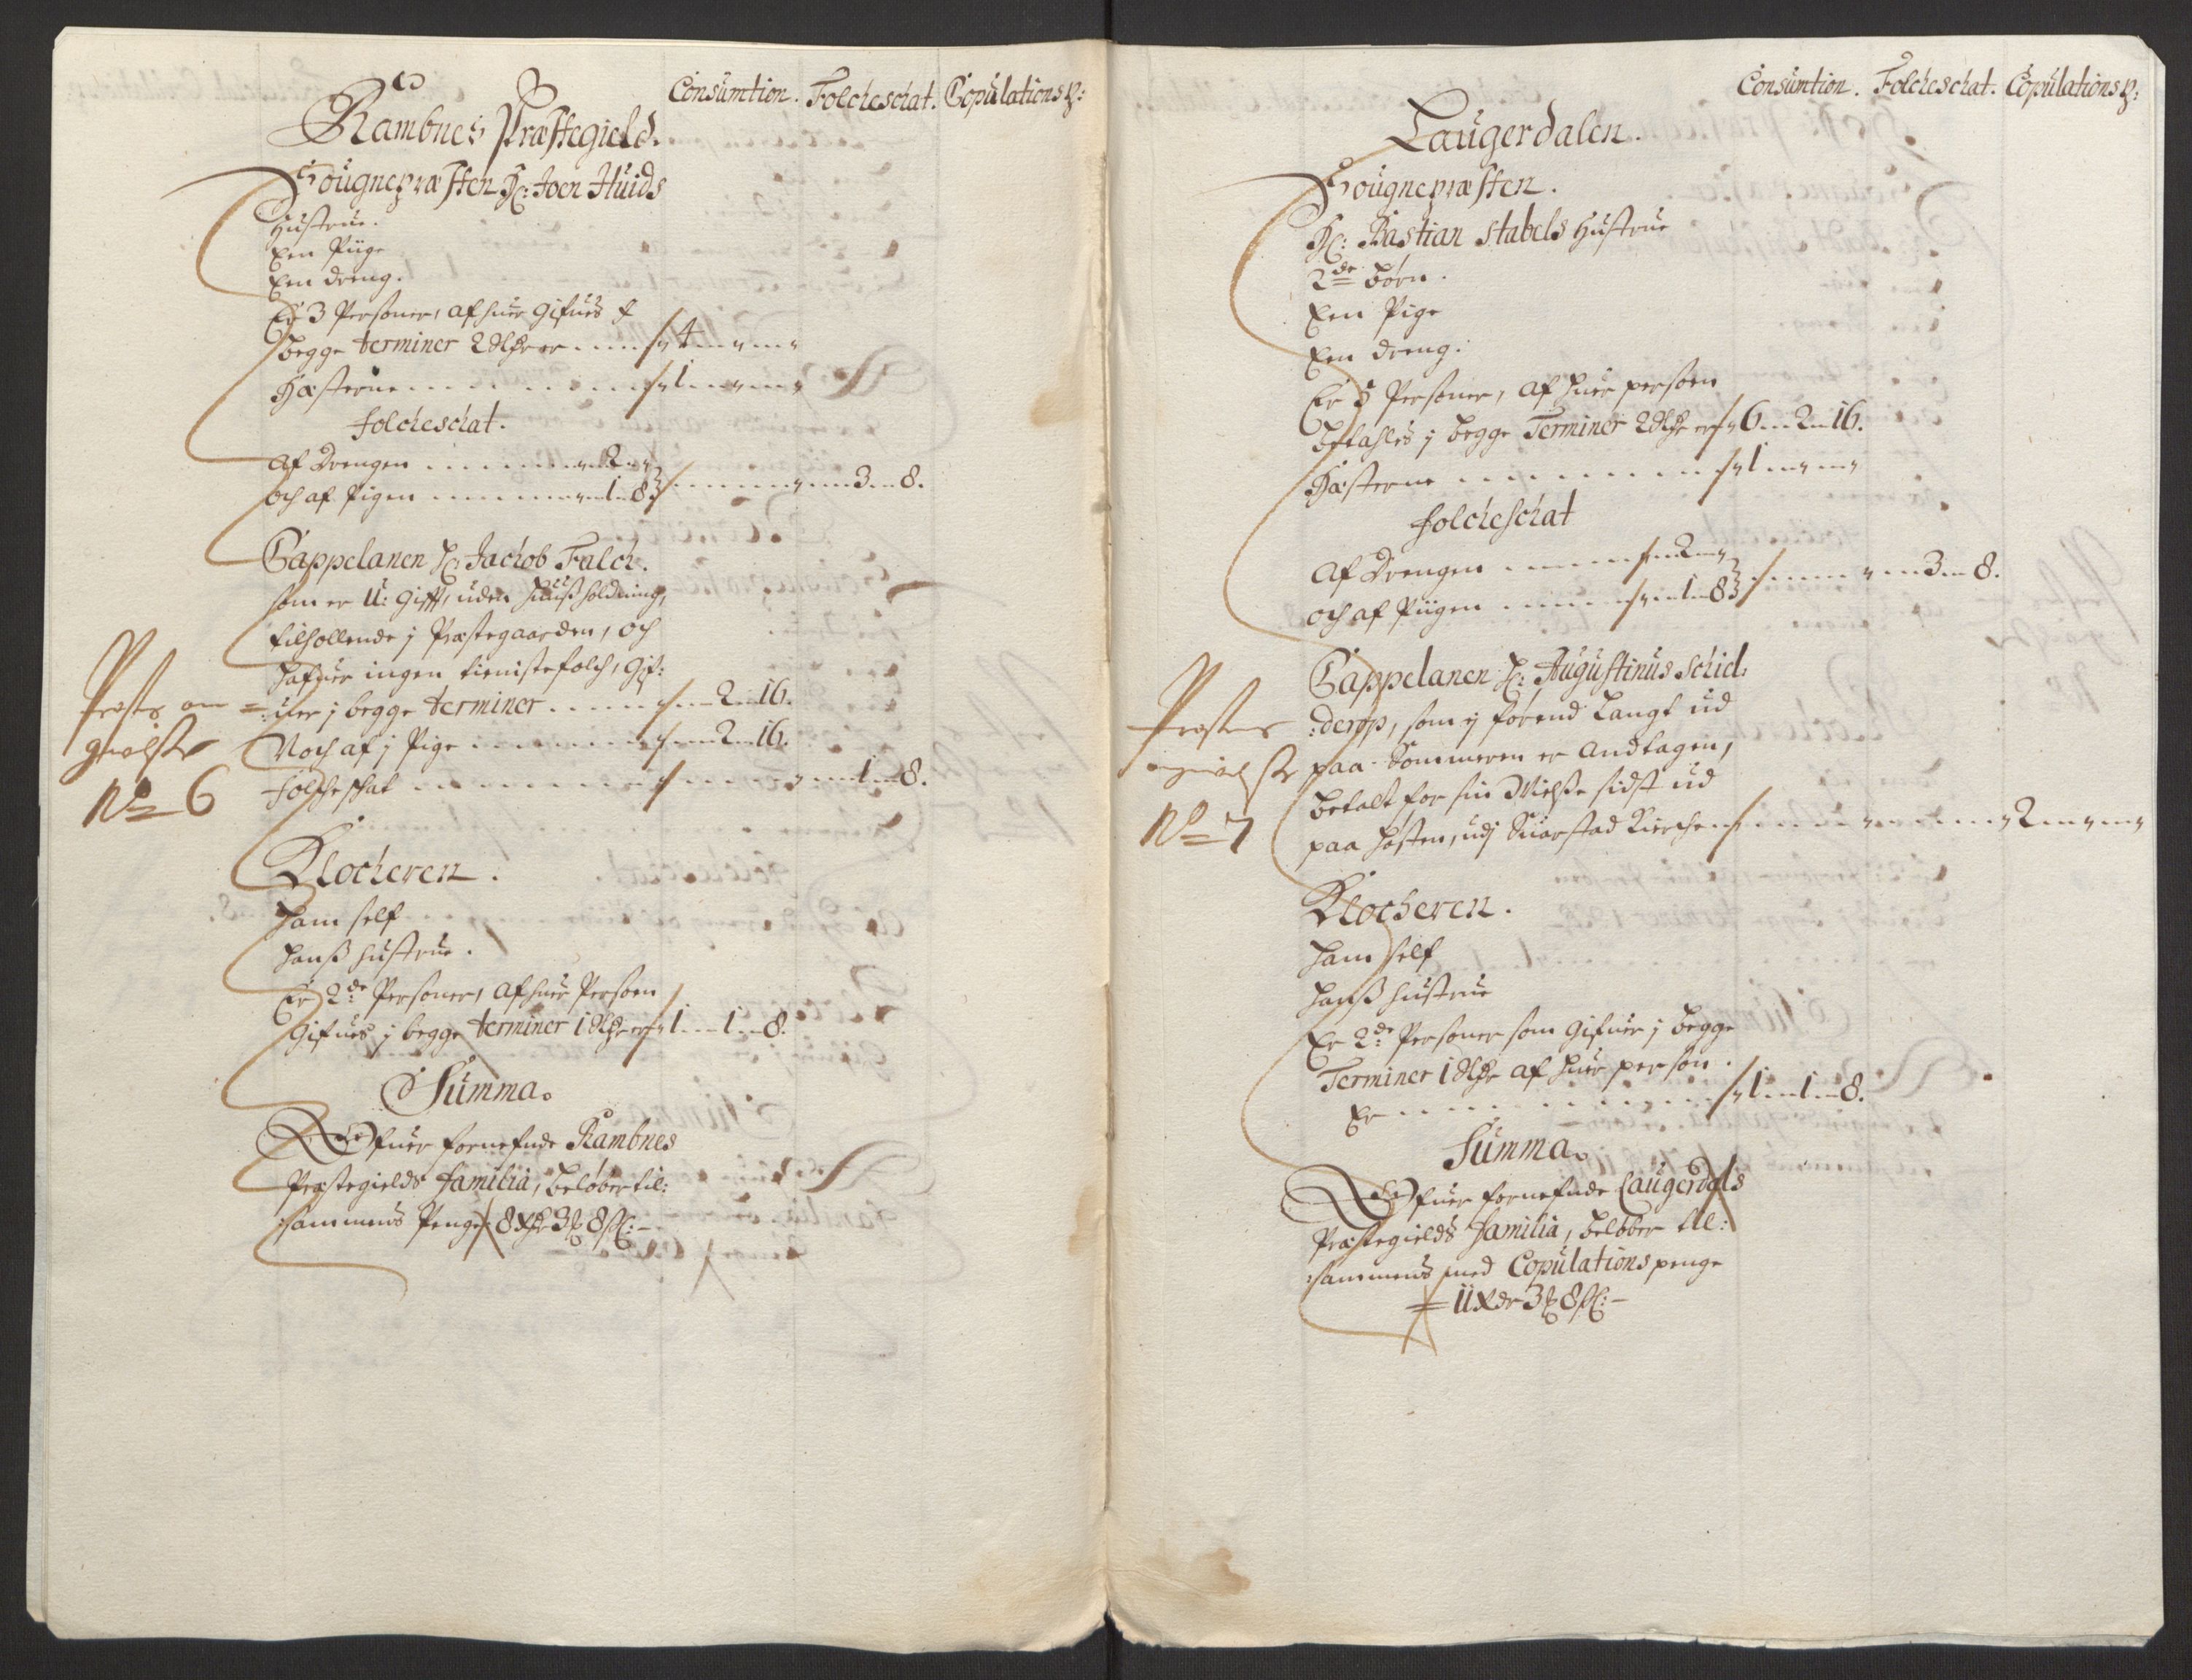 Consumtion. Folckeschat. Copulations p:
Rambnes Præstegield.
Sougnepræsten Hr: Joen Huids
Hustrue.
Een Piige
Een dreng.
Er 3 Personer, af huer gifues
begge terminer 2 dlr er . . . . 4 „ „
Hæsterne . . . . . . . . 1 „ „
folckeschat.
Af Drengen . . . . . . . 2 „
och af Pigen . . . . . . 1 - 8 . . . . . „ 3 - 8.
Cappelanen Hr: Jachob Falch.
som er U: gifft, uden huußholdning,
tilhollende j Præstegaarden, och
hafuer ingen tienistefolch, gif:
:uer j begge terminer . . . . . - 2 - 16.
Noch af j Pige . . . . . . . - 2 - 16.
folcheschat . . . . . . . . . . . . „ 1 - 8.
Præstens an
givelsse
No 6
Klocheren.
Ham self
Hanß hustrue.
Er 2de Personer, af huer Persoen
gifues j begge terminer 1 dlr er 1 - 1 - 8.
Summa.
Ofuer forneffnde Rambnes
Præstegields familia, beløber til:
:sammens Penge 8 Rdr 3 ℔ 8 sk: -
Consumtion. Folckeschat. Copulations p:
Laugerdalen.
Sougnepræsten.
Hr: Bastian Stabels Hustrue
2de børn.
Een Pige
Een dreng.
Er 5 Personer, af huer persoen
betahles j begge Terminer 2 dlr er 6 - 2 - 16.
Hæsterne . . . . . . . . . 1 „ „
folckeschat
Af Drengen . . . . . . 2 „
och af Piigen . . . . . 1 - 8 . . . . „ 3 - 8.
Cappelanen Hr: Augustinus Schiel:
:derop, som ej førend Langt ud
paa Sommeren er andtagen,
betalt for sin Vielse sidst ud
paa høsten, udj Suarstad Kierche . . . . . . „ 2 „ „
Præstens
angivelsse
No 7
Klocheren.
Ham self
Hanß hustrue
Er 2de Personer som gifuer j begge
Terminer 1 dlr af huer person.
Er . . . . . . . . . . . 1 - 1 - 8.
Summa.
Ofuer forneffnde Laugerdals
Præstegields familia, beløber til:
:sammens med Copulations penge
11 Rdr 3 ℔ 8 sk: -